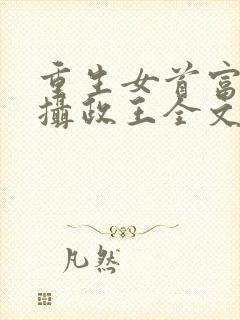 重生女首富
攝政王全文
凡然